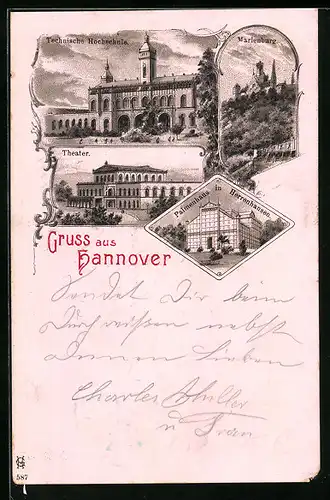 Technische Hochschule.
Marienburg.
Theater.
Palmenhaus in Herrenhausen.
Gruss aus
Hannover
Sendet Dir beim
Durchreisen nebst
Deinen Lieben
Charles Müller
u Frau
587